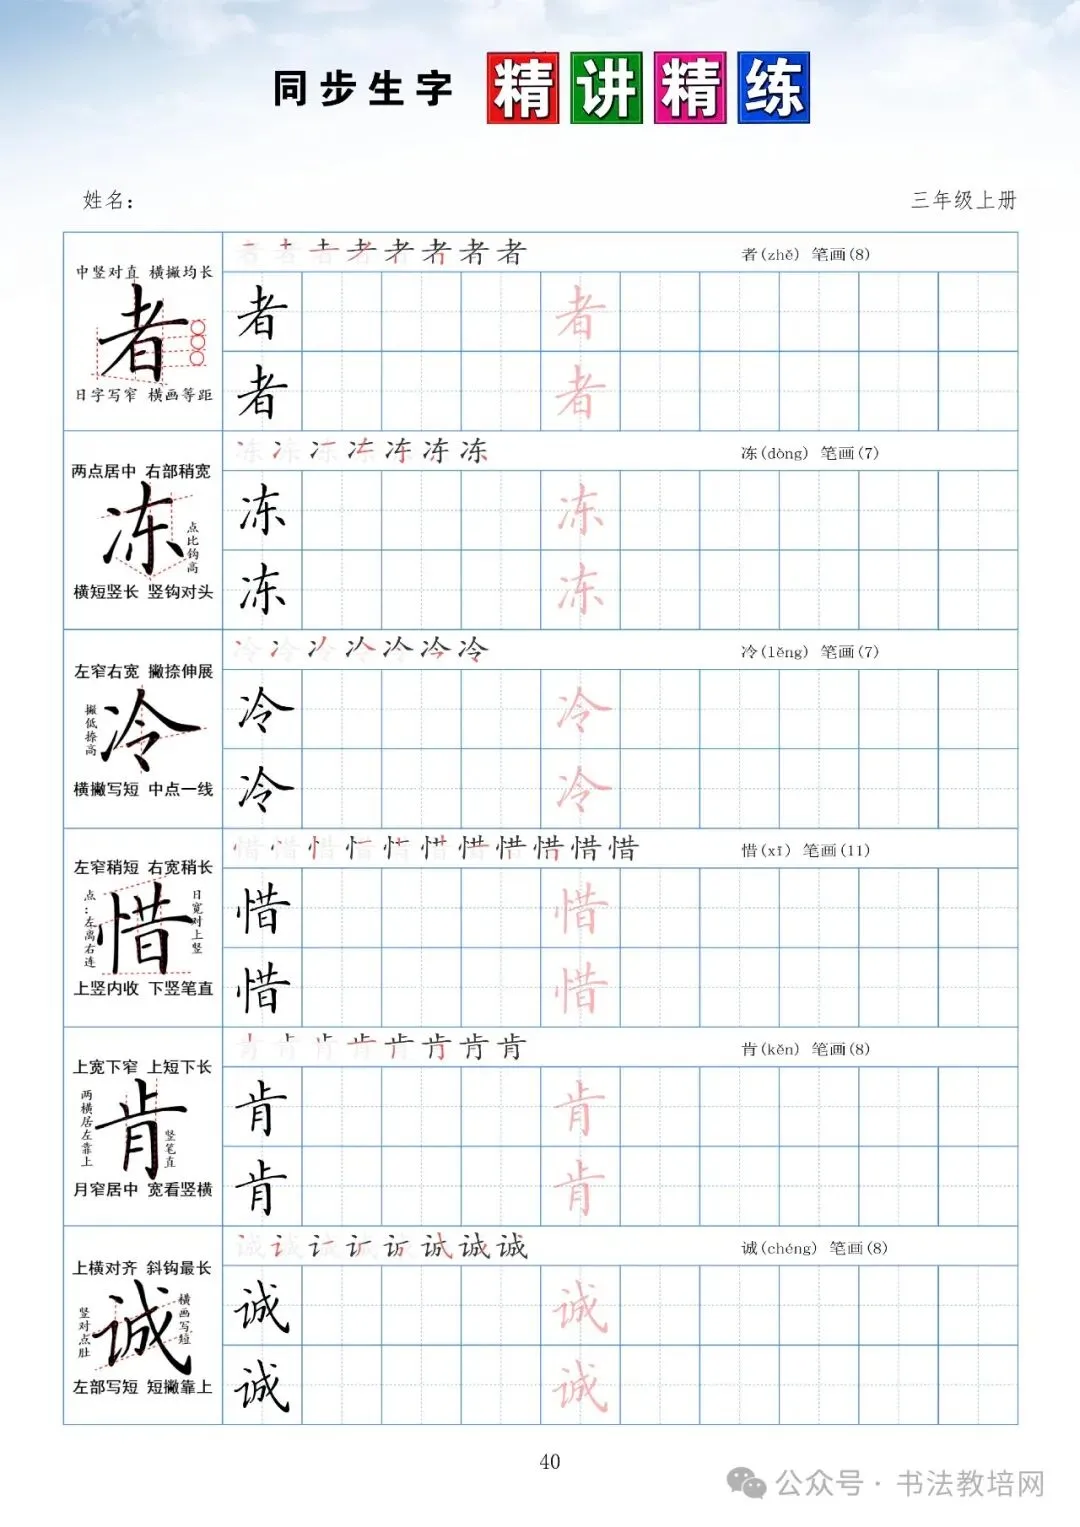 同步生字 精讲精练
姓名：
三年级上册
中竖对直 横撇均长
者
日字写窄 横画等距
者 者 者 者 者 者 者 者
者(zhě) 笔画(8)
者 者
者 者
两点居中 右部稍宽
冻
点比钩高
横短竖长 竖钩对头
冻 冻 冻 冻 冻 冻 冻
冻(dòng) 笔画(7)
冻 冻
冻 冻
左窄右宽 撇捺伸展
撇低捺高
冷
横撇写短 中点一线
冷 冷 冷 冷 冷 冷 冷
冷(lěng) 笔画(7)
冷 冷
冷 冷
左窄稍短 右宽稍长
点：左离右连
惜
日宽对上竖
上竖内收 下竖笔直
惜 惜 惜 惜 惜 惜 惜 惜 惜 惜 惜
惜(xī) 笔画(11)
惜 惜
惜 惜
上宽下窄 上短下长
两横居左靠上
肯
竖笔直
月窄居中 宽看竖横
肯 肯 肯 肯 肯 肯 肯 肯
肯(kěn) 笔画(8)
肯 肯
肯 肯
上横对齐 斜钩最长
竖对点肚
诚
横画写短
左部写短 短撇靠上
诚 诚 诚 诚 诚 诚 诚 诚
诚(chéng) 笔画(8)
诚 诚
诚 诚
40
公众号·书法教培网